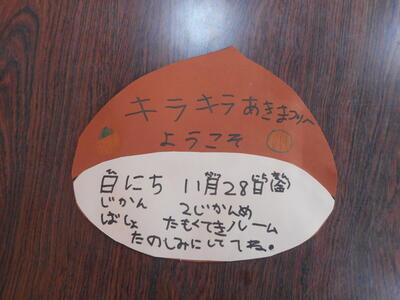 キラキラあきまつりへ
ようこそ
日にち 11月28日(金)
じかん 2じかんめ
ばしょ たもくてきルーム
たのしみにしててね。